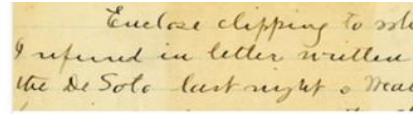 Enclose clipping to
I referred in letter written
the De Soto last night